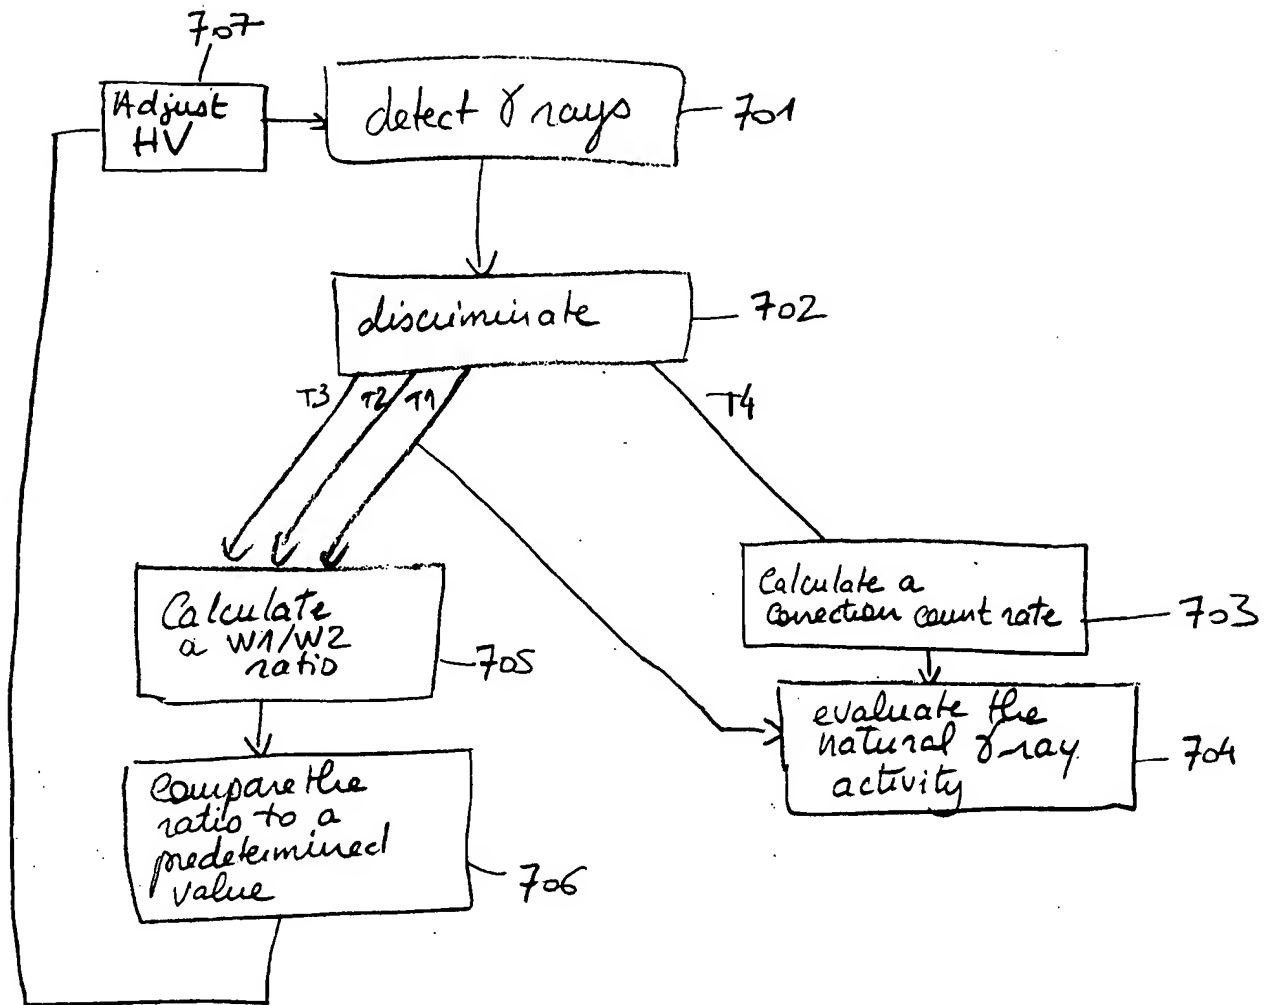 707
Adjust
HV
detect γ rays
701
discriminate
702
T3
T2
T1
T4
Calculate a
correction count rate
703
Calculate
a W1/W2
ratio
705
evaluate the
natural γ ray
activity
704
Compare the
ratio to a
predetermined
value
706